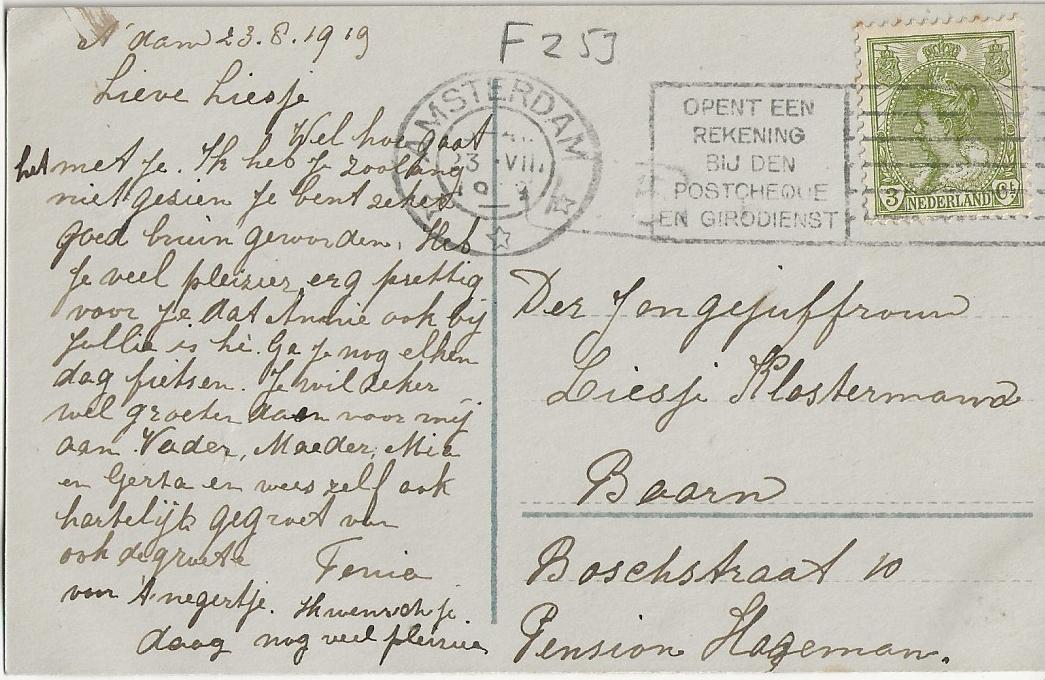 A'dam 23.8.1919
F 253
Lieve Liesje
Wel hoe gaat
het met je. Ik heb je zoolang
niet gezien je bent zeker
goed bruin geworden. Heb
je veel pleizier, erg prettig
voor je dat Annie ook bij
jullie is hè. Ga je nog elken
dag fietsen. Je wil zeker
wel groeten doen voor mij
aan Vader, Moeder, Mia
en Gerta en wees zelf ook
hartelijk gegroet van
ook de groete Fenia
van 't negertje. Ik wensch je
daag nog veel pleizier
AMSTERDAM
23 VIII
OPENT EEN
REKENING
BIJ DEN
POSTCHEQUE
EN GIRODIENST
3 NEDERLAND Ct
Der Jongejuffrouw
Liesje Klostermann
Baarn
Boschstraat 10
Pension Hageman.